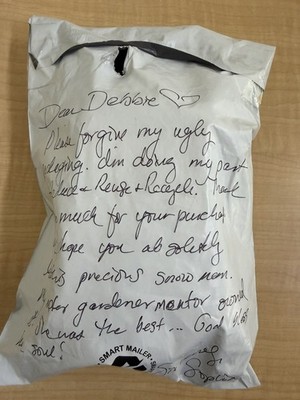 Dear Debbie
Please forgive my ugly
packaging. I'm doing my part
Reduce & Reuse & Recycle. Thank
much for your purchase
hope you absolutely
precious snow man.
gardener mentor owned
was the best... God bless
soul!
SMART MAILER